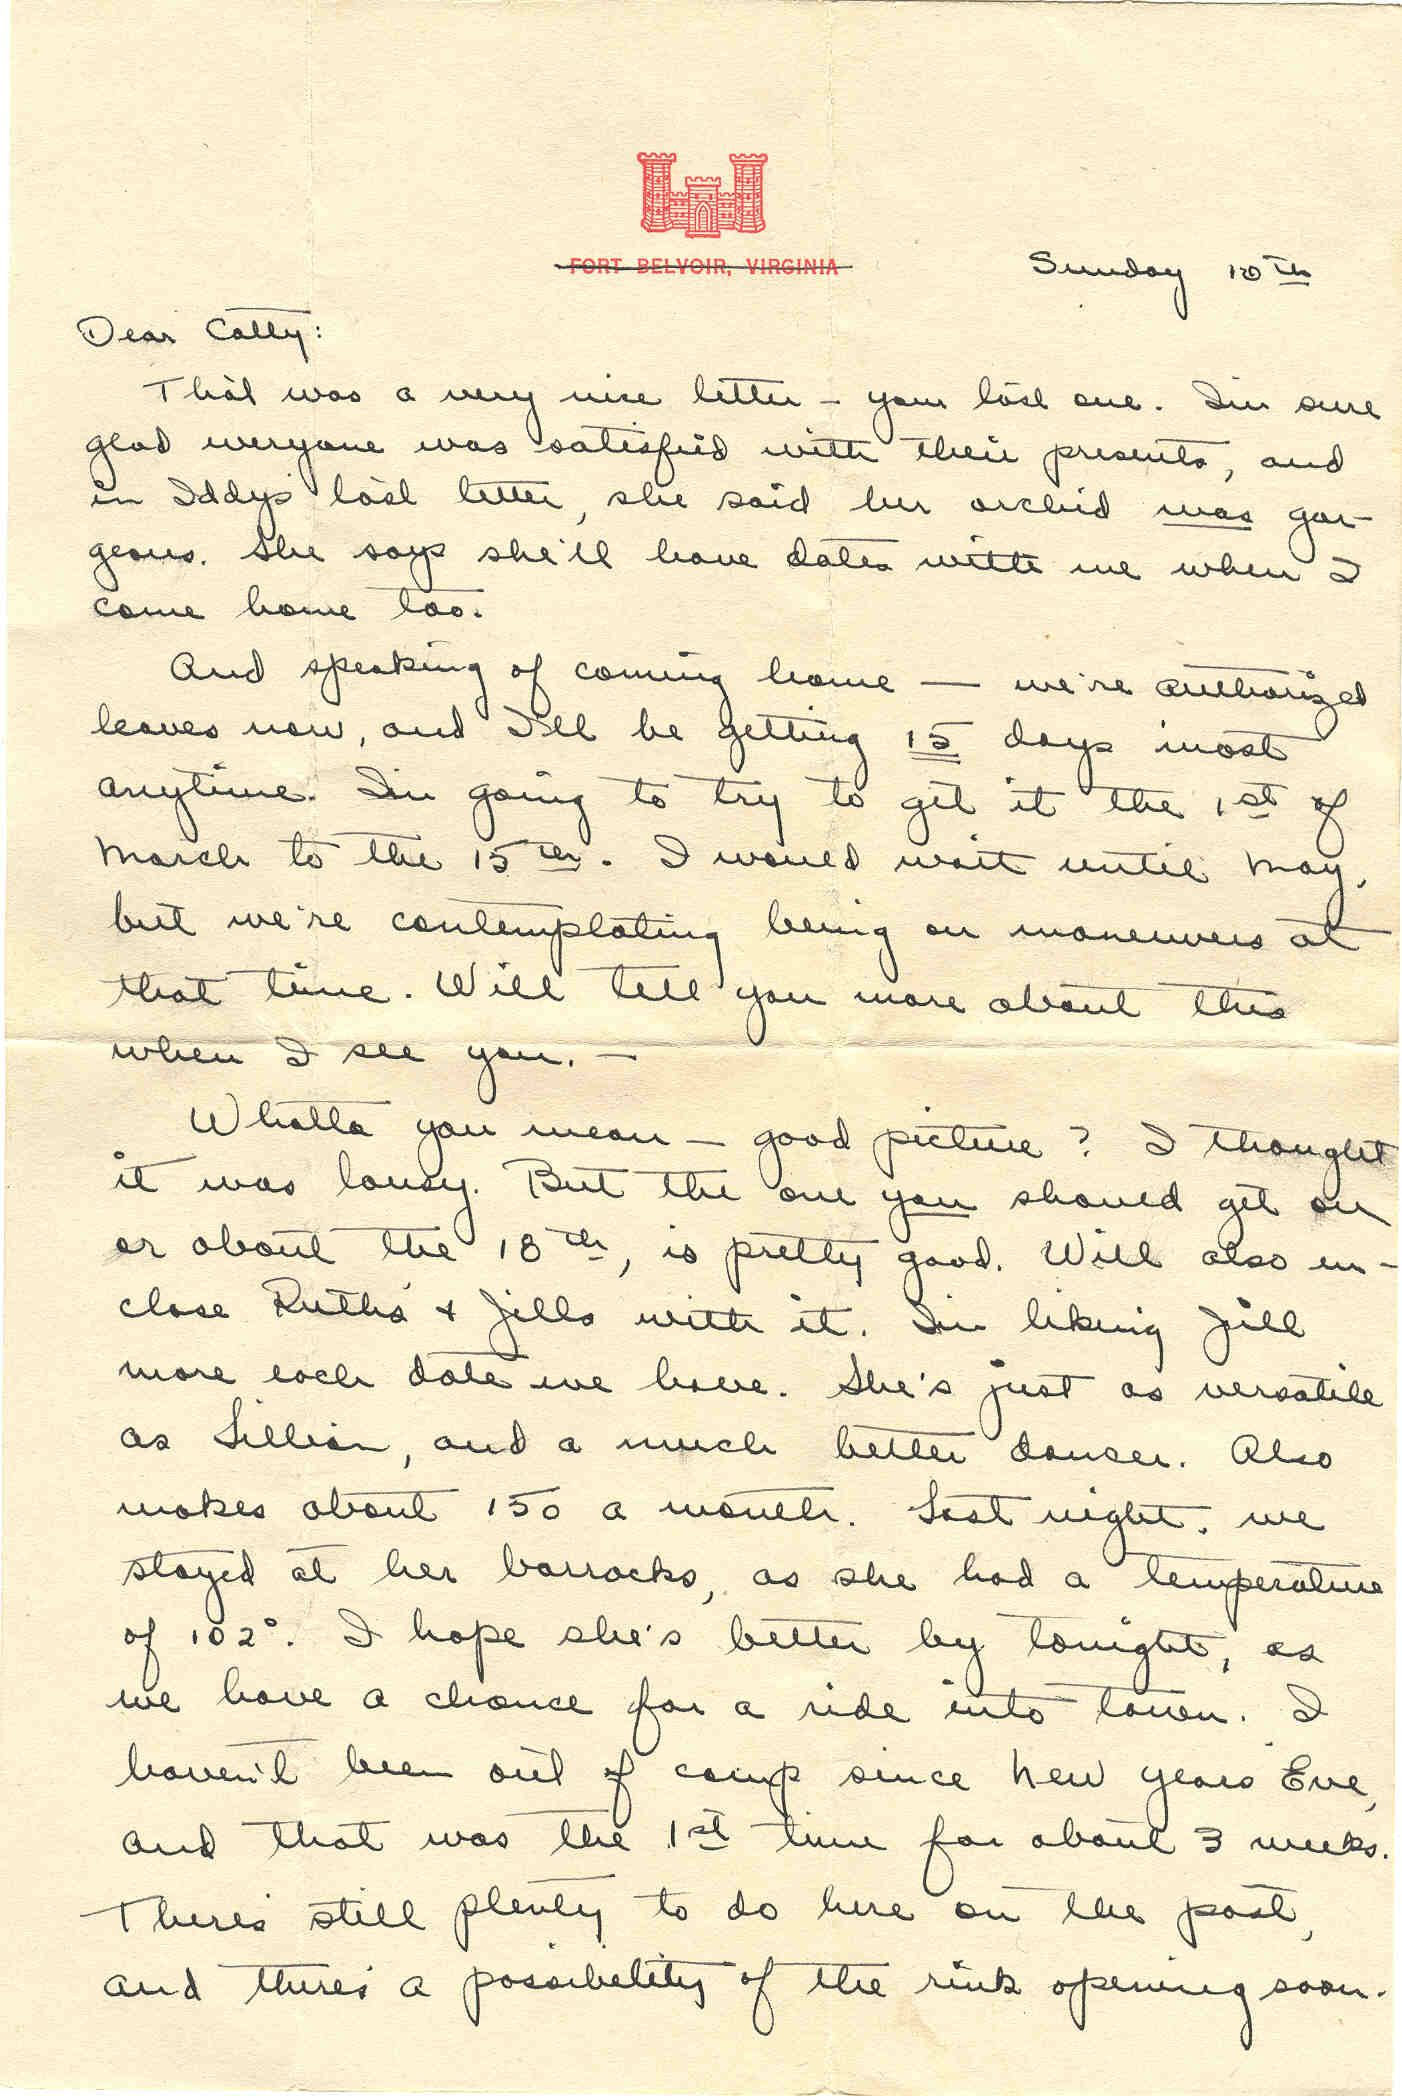 FORT BELVOIR, VIRGINIA
Sunday 10th
Dear Catty:
That was a very nice letter - your last one. I'm sure
glad everyone was satisfied with their presents, and
in Iddys' last letter, she said her orchid was gor-
geous. She says she'll have dates with me when I
come home too.
And speaking of coming home — we're authorized
leaves now, and I'll be getting 15 days most
anytime. I'm going to try to get it the 1st of
March to the 15th. I would wait until May,
but we're contemplating being on maneuvers at
that time. Will tell you more about this
when I see you. —
Whatta you mean - good picture? I thought
it was lousy. But the one you should get on
or about the 18th, is pretty good. Will also en-
close Ruths' & Jills with it. I'm liking Jill
more each date we have. She's just as versatile
as Lillian, and a much better dancer. Also
makes about 150 a month. Last night, we
stayed at her barracks, as she had a temperature
of 102°. I hope she's better by tonight, as
we have a chance for a ride into town. I
haven't been out of camp since New Years Eve,
and that was the 1st time for about 3 weeks.
There's still plenty to do here on the post,
and there's a possibility of the rink opening soon.